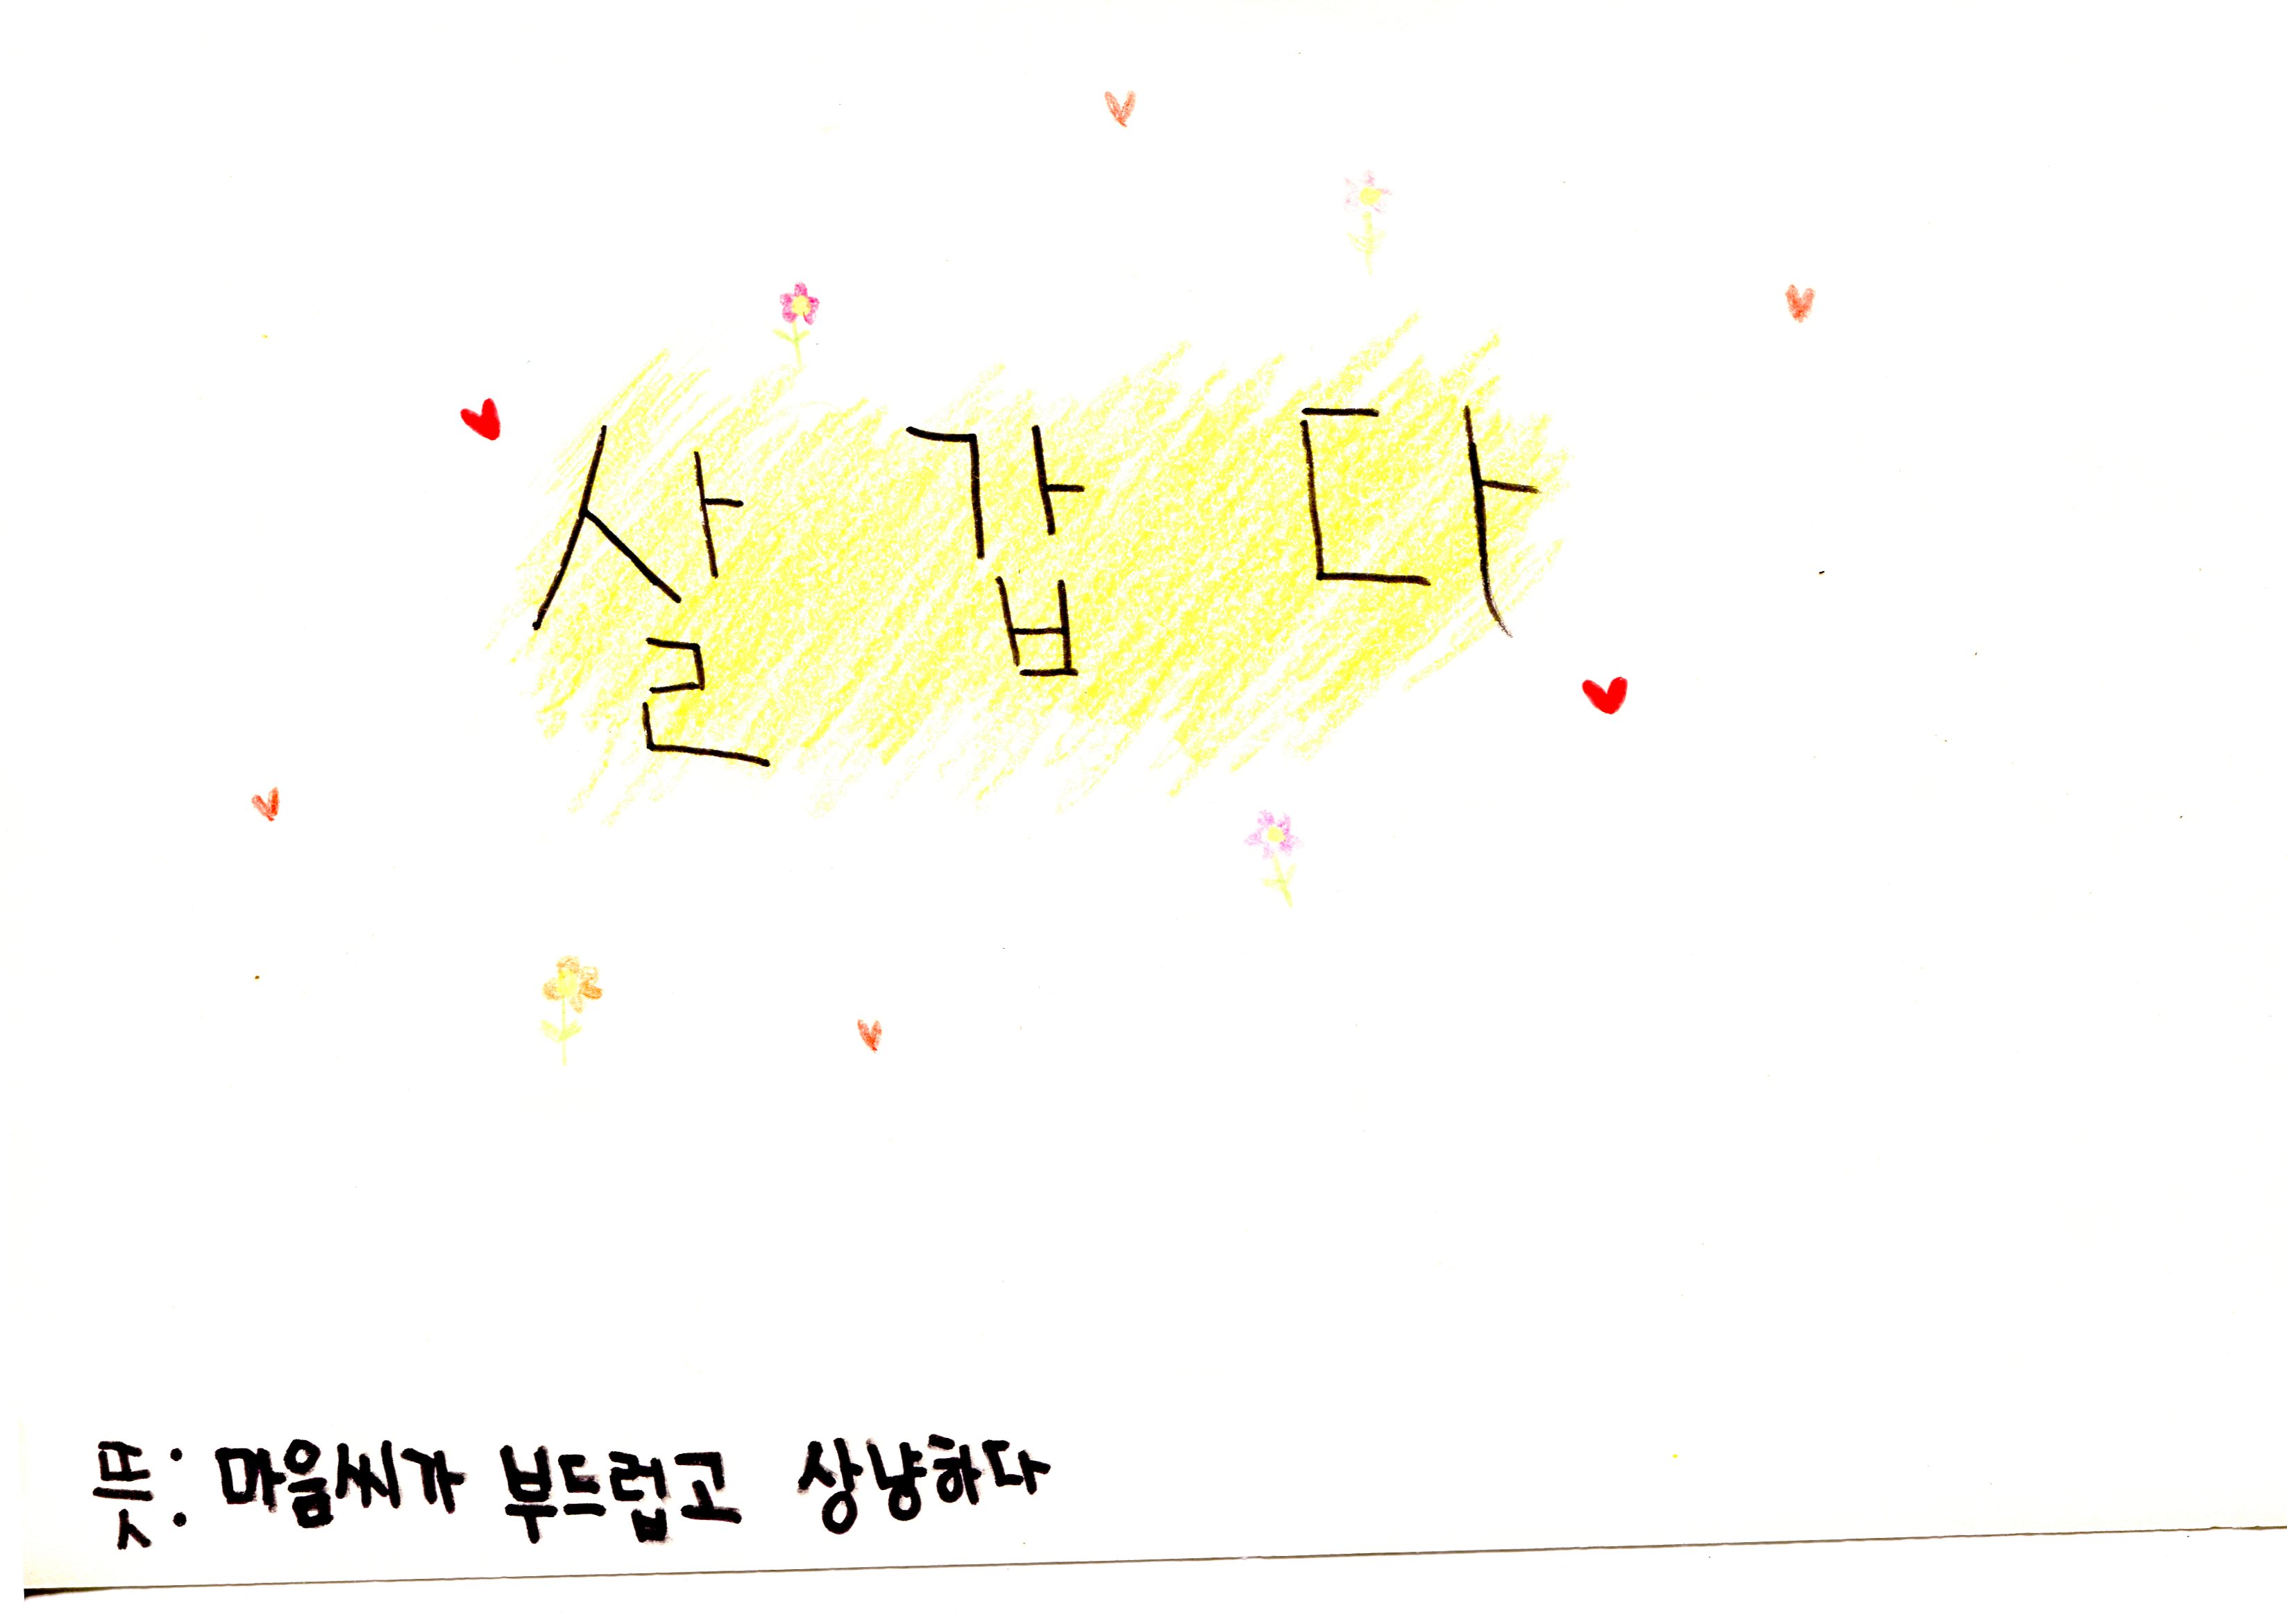 살갑다
뜻: 마음씨가 부드럽고 상냥하다